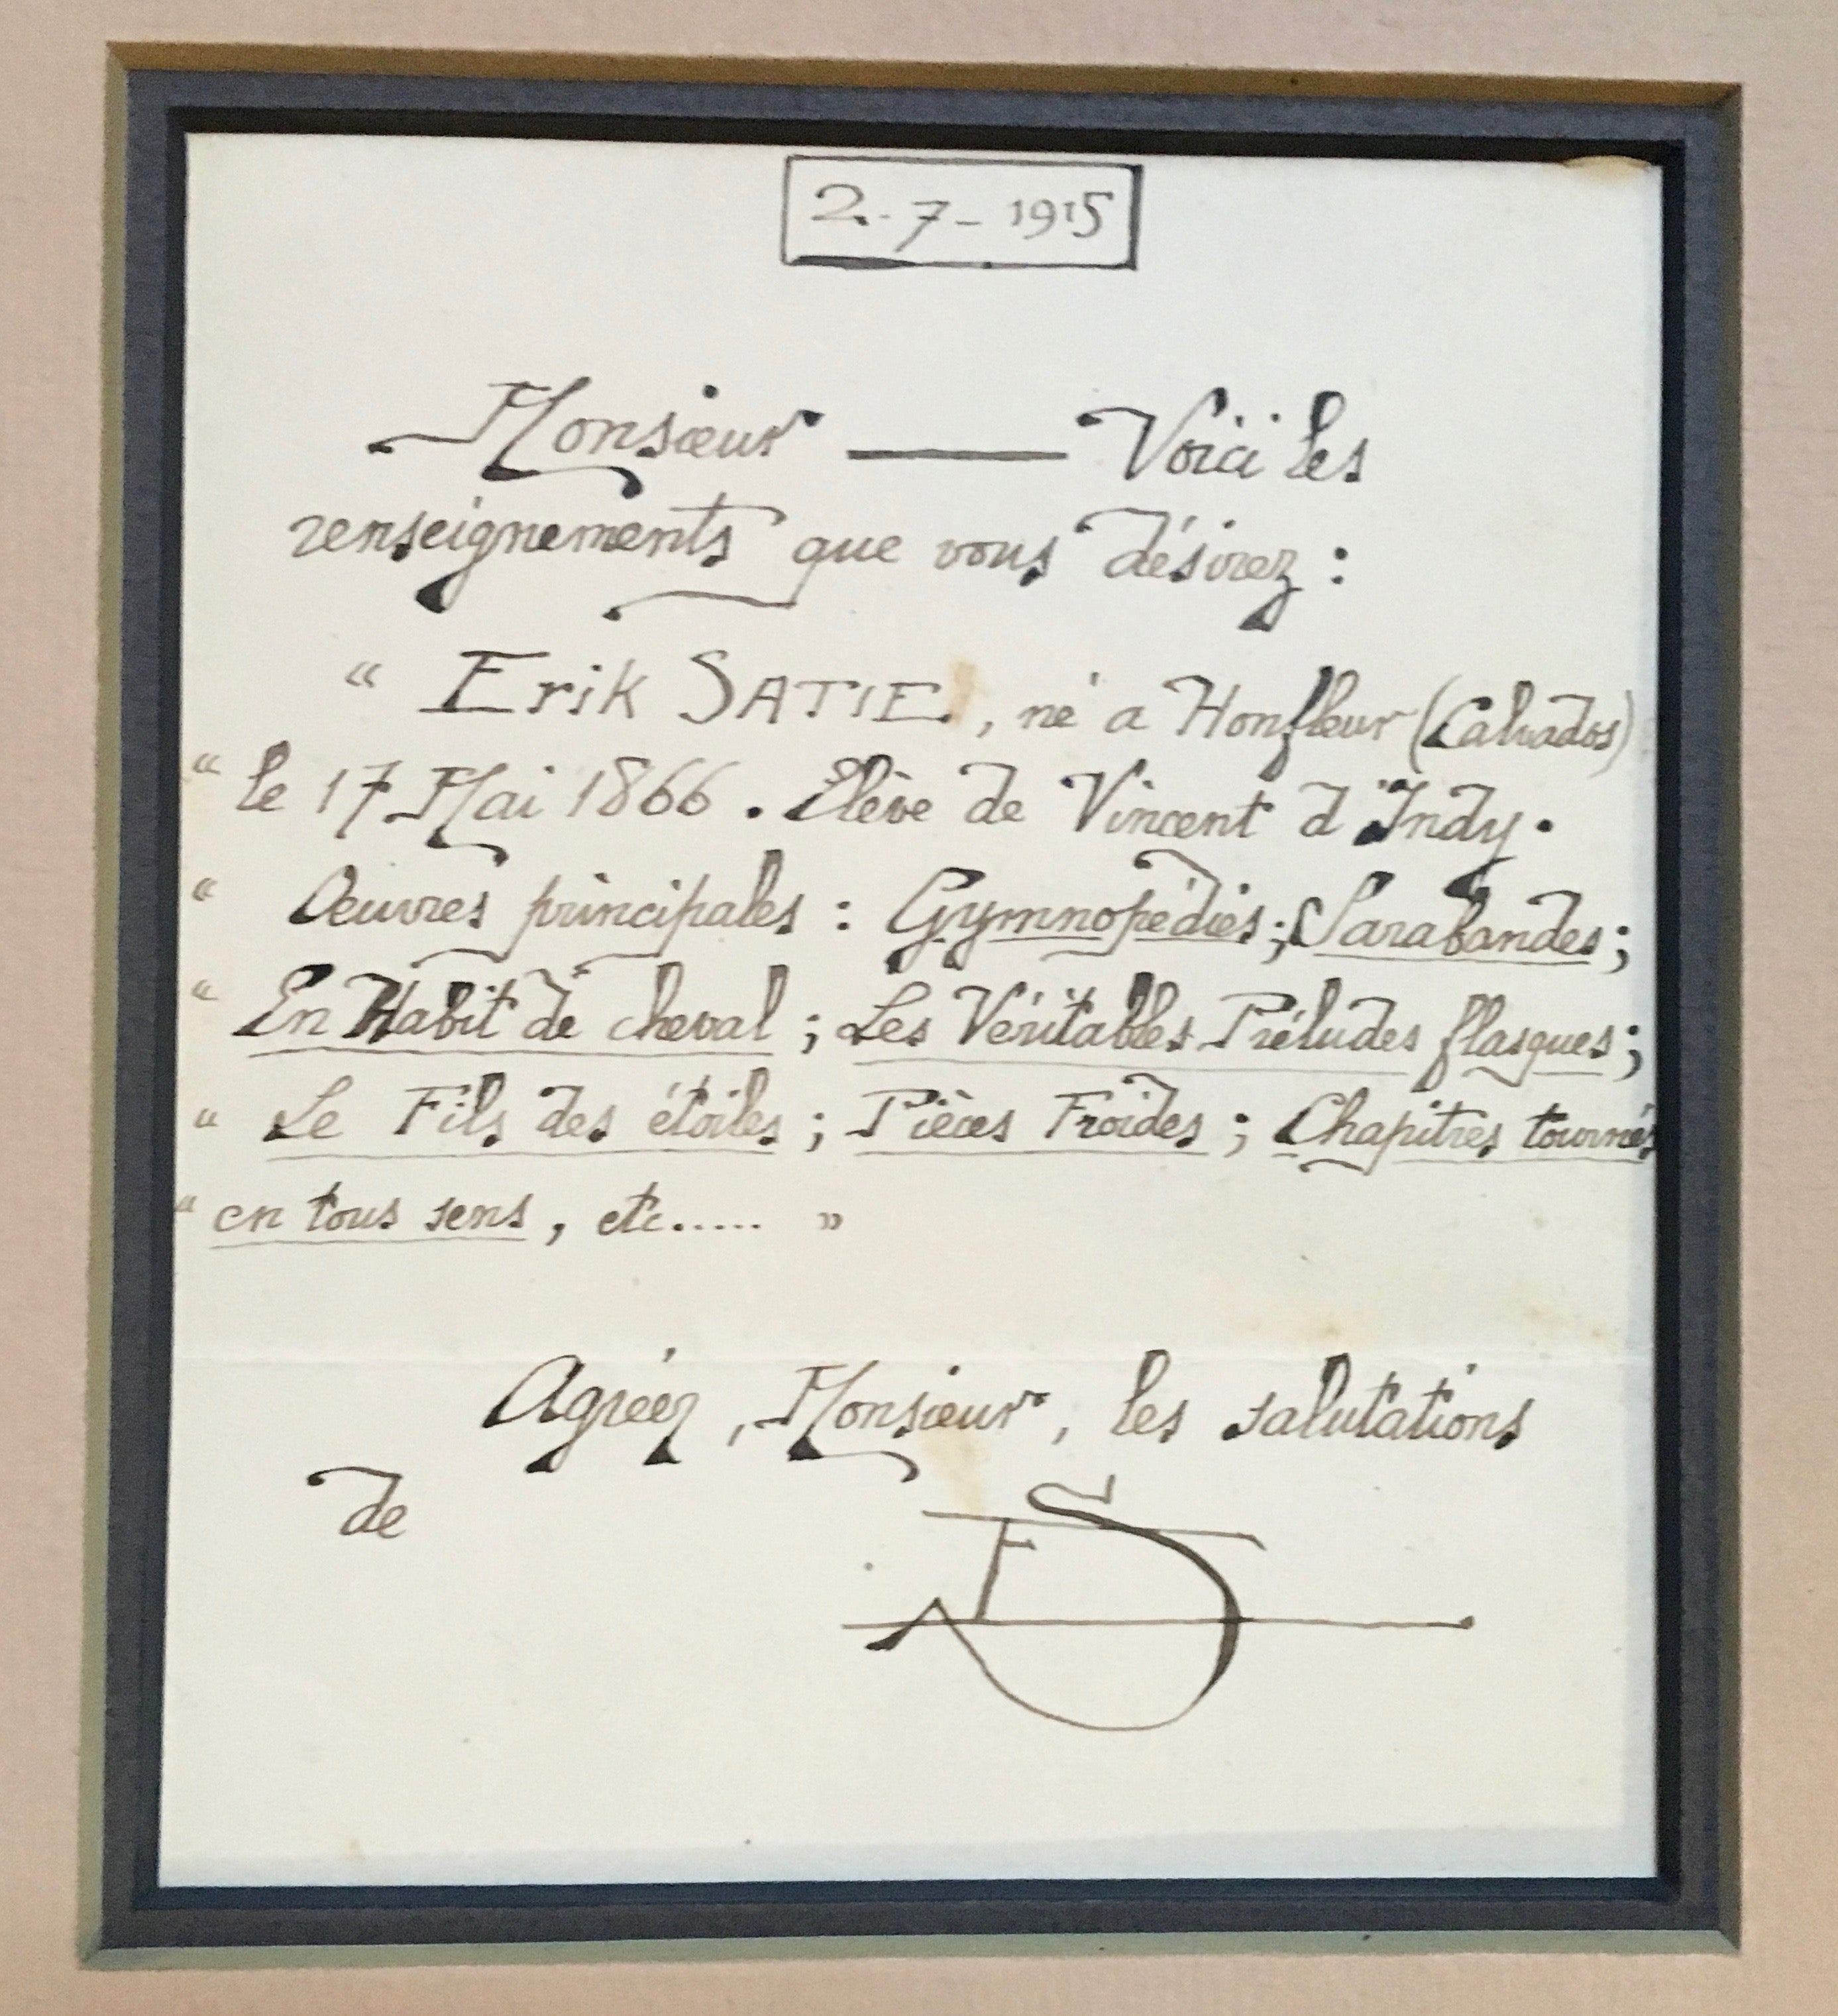 2.-7-1915
Monsieur — Voici les
renseignements que vous désirez :
" Erik SATIE, né à Honfleur (Calvados)
" le 17 Mai 1866. Elève de Vincent d'Indy.
" Oeuvres principales : Gymnopédies; Sarabandes;
" En Habit de cheval ; Les Véritables Préludes flasques;
" Le Fils des étoiles ; Pièces Froides ; Chapitres tournés
" en tous sens, etc..... »
Agréez, Monsieur, les salutations
de
ES